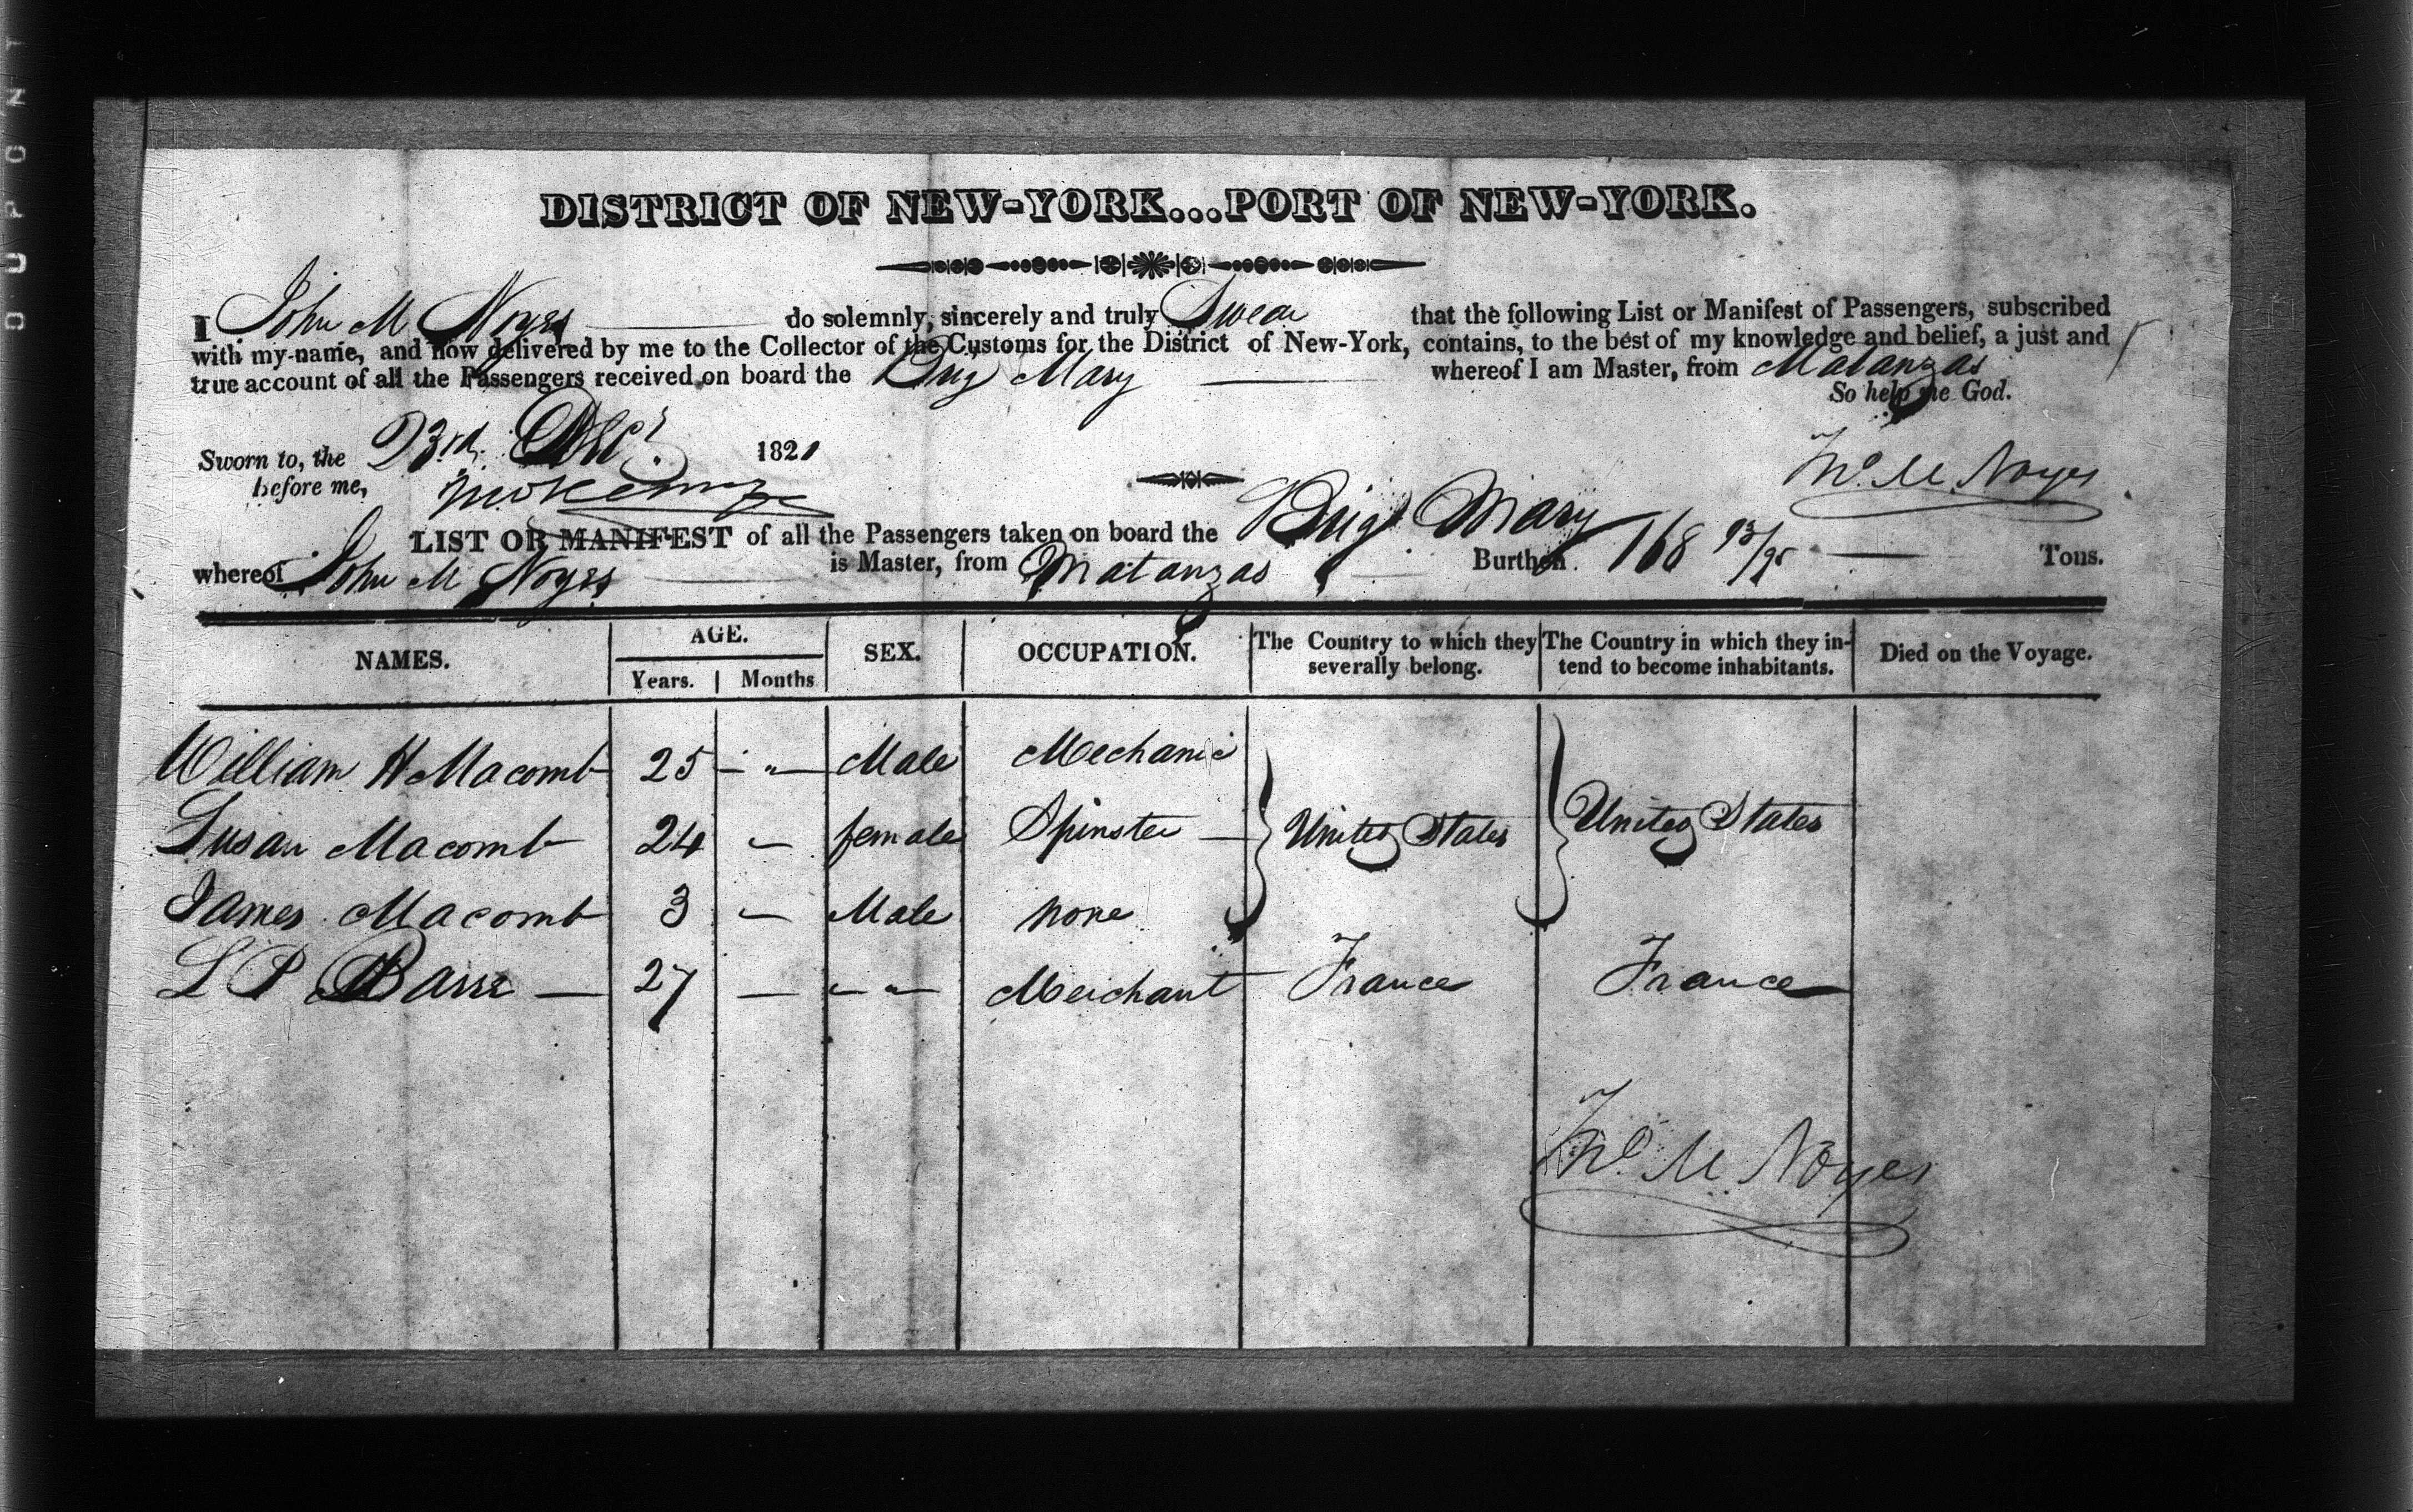 DUPONT
DISTRICT OF NEW-YORK...PORT OF NEW-YORK.
I John M Noyes do solemnly, sincerely and truly Swear that the following List or Manifest of Passengers, subscribed
with my name, and now delivered by me to the Collector of the Customs for the District of New-York, contains, to the best of my knowledge and belief, a just and
true account of all the Passengers received on board the Brig Mary whereof I am Master, from Matanzas
So help me God.
Sworn to, the 23rd. Decr. 1821
before me,
Jno. M. Noyes
LIST OR MANIFEST of all the Passengers taken on board the Brig Mary
whereof John M Noyes is Master, from Matanzas Burthen 168 93/95 Tons.
NAMES. AGE. Years. Months SEX. OCCUPATION. The Country to which they severally belong. The Country in which they intend to become inhabitants. Died on the Voyage.
William H Macomb 25 - " - Male Mechanic
Susan Macomb 24 " female Spinster — United States United States
James Macomb 3 " Male none
L P — 27 — " " Merchant France France
Jno. M. Noyes